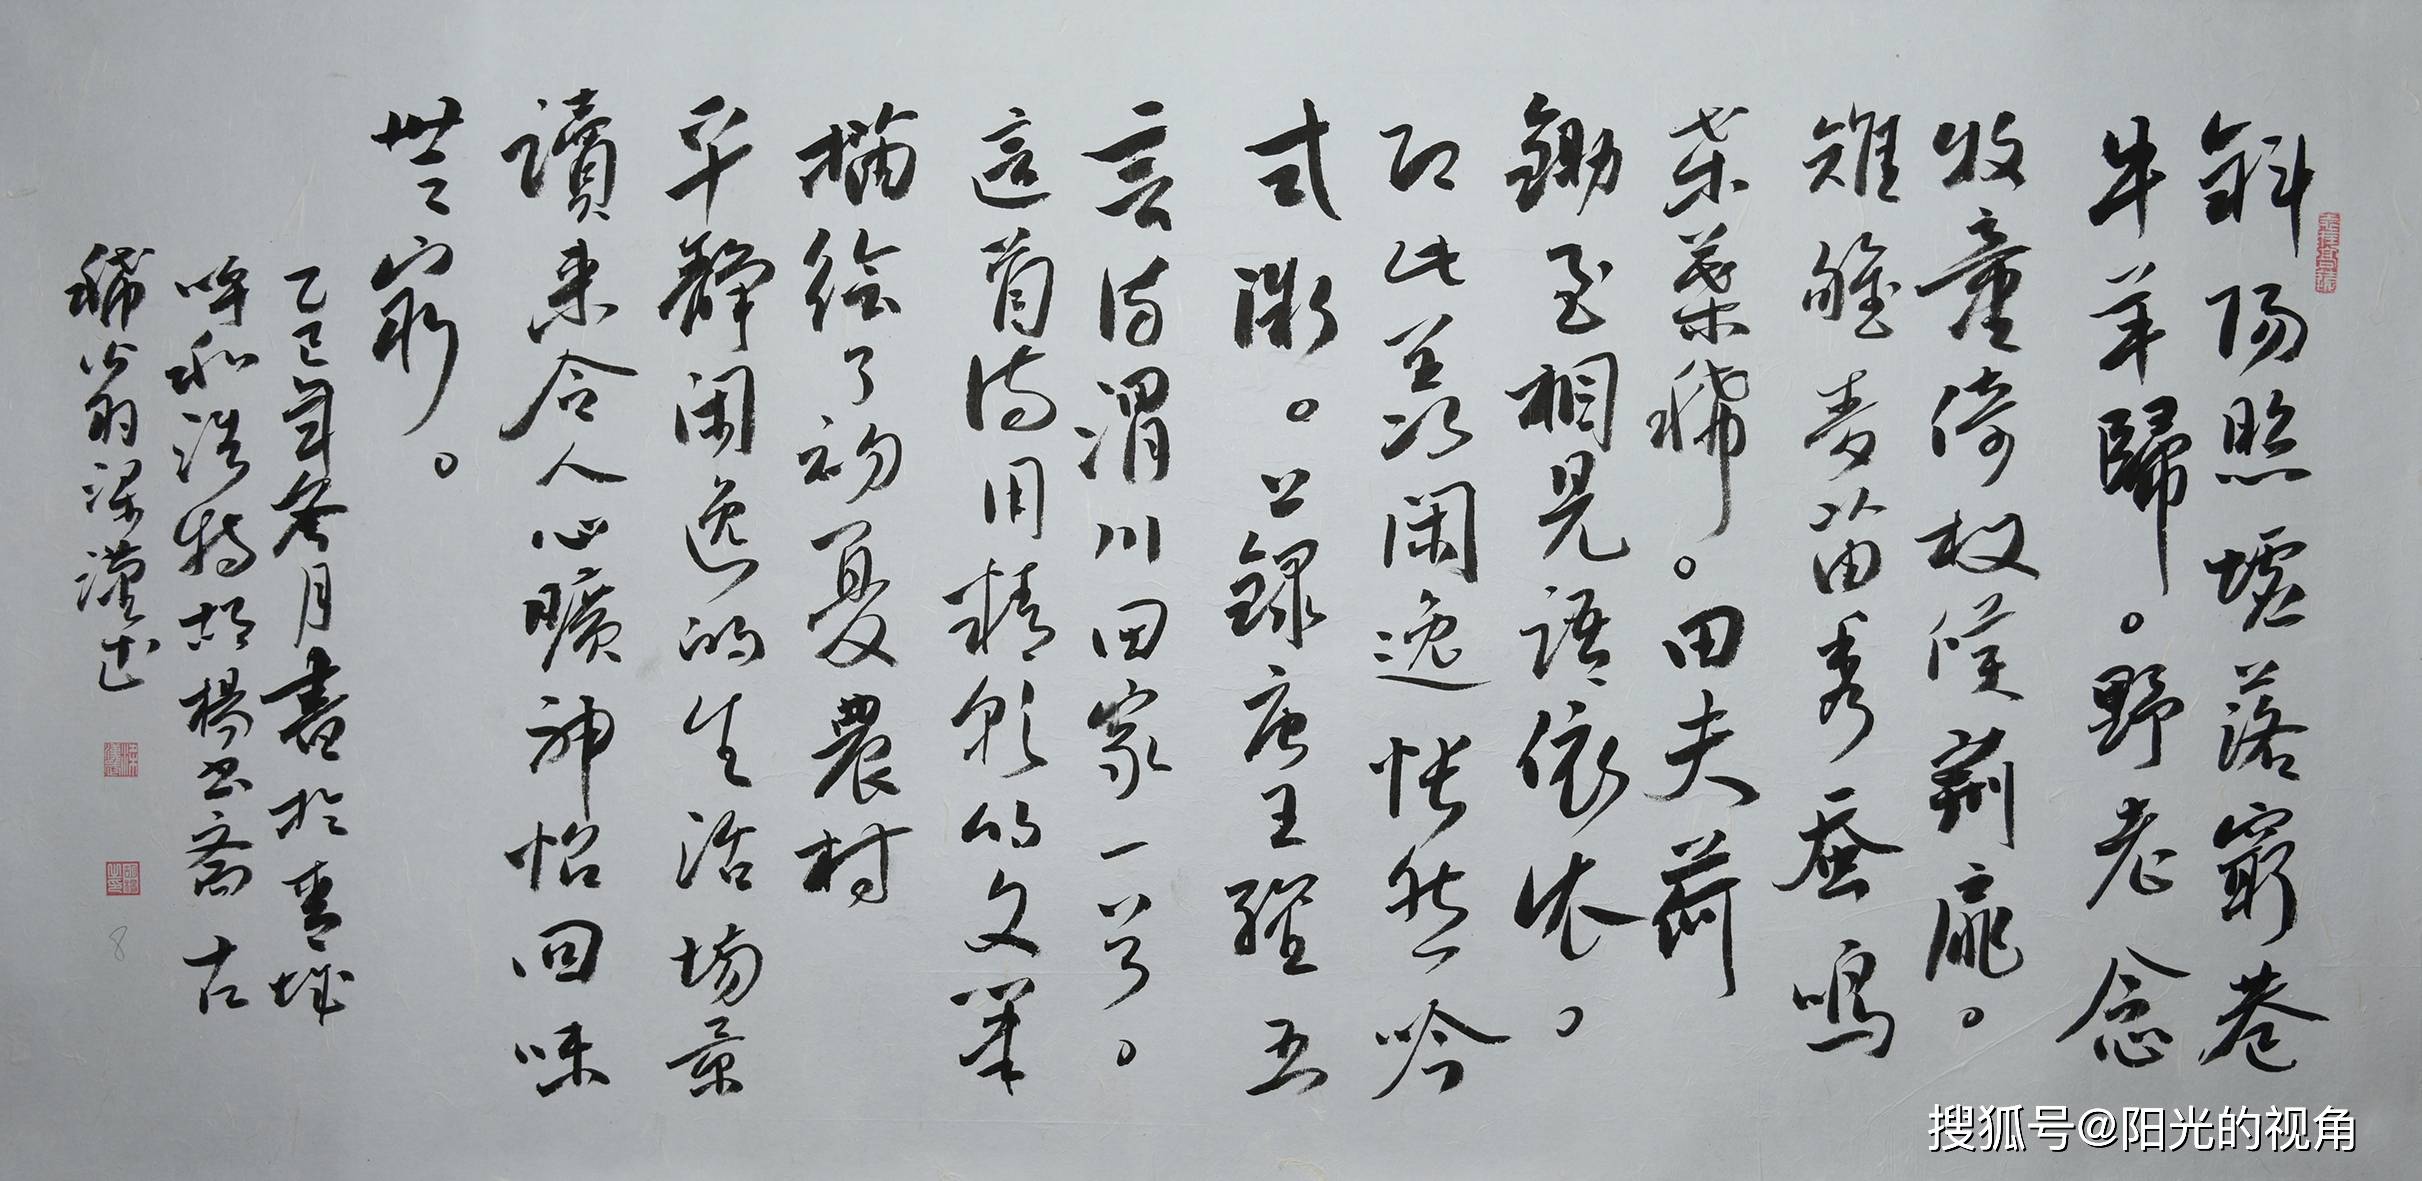 斜陽照墟落窮巷
牛羊歸。野老念
牧童倚杖候荊扉。
雉雊麥苗秀蚕鳴
桑葉稀。田夫荷
鋤至相見語依依。
即此羡闲逸怅然吟
式微。上録唐王維五
言诗渭川田家一首。
這首诗用精彩的文筆
描绘了初夏農村
平静闲逸的生活場景
讀来令人心曠神怡回味
無穷。
乙巳年冬月書於青城
呼和浩特胡楊书斋古
稀翁梁漢
搜狐号@阳光的视角